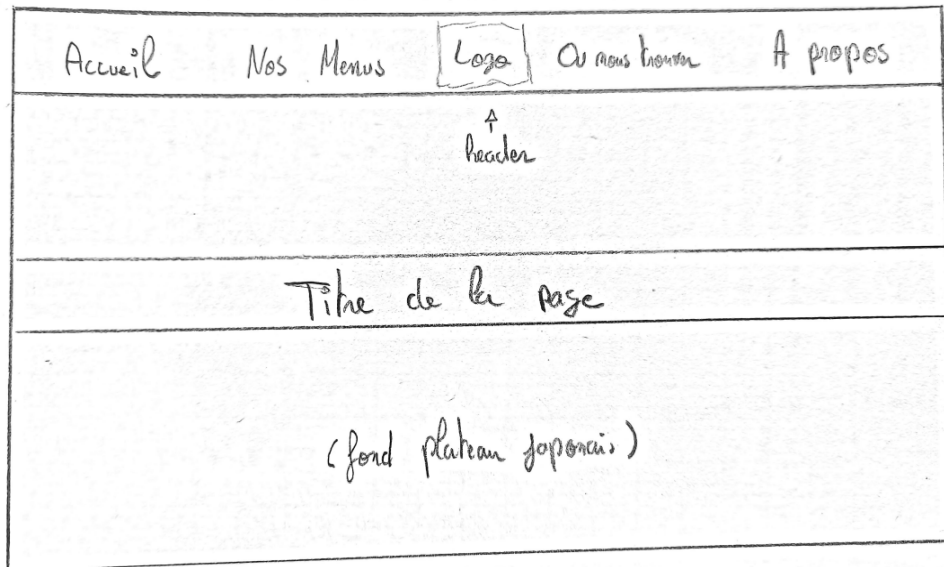 Accueil Nos Menus Logo Ou nous trouver A propos
header
Titre de la page
(fond plateau japonais)